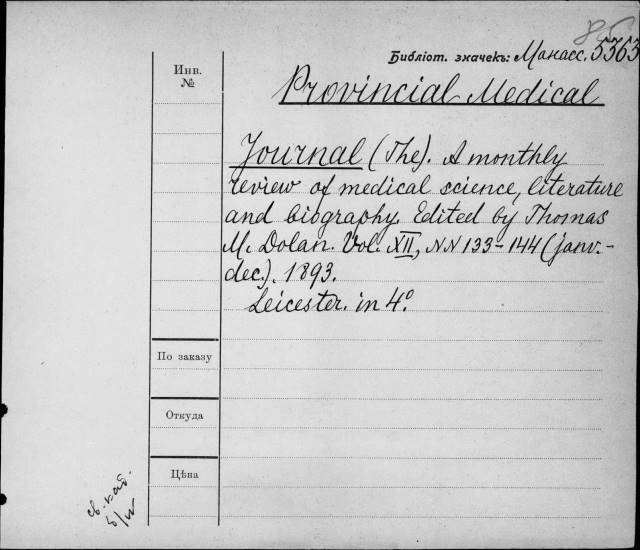 Библіот. значекъ: Манасс. 5363
Инв.
№
Provincial Medical
Journal (The). A monthly
review of medical science, literature
and biography. Edited by Thomas
M. Dolan. Vol. XII, NN 133-144 (janv.-
dec.). 1893.
Leicester. in 4º.
По заказу
Откуда
Цѣна
св. каб.